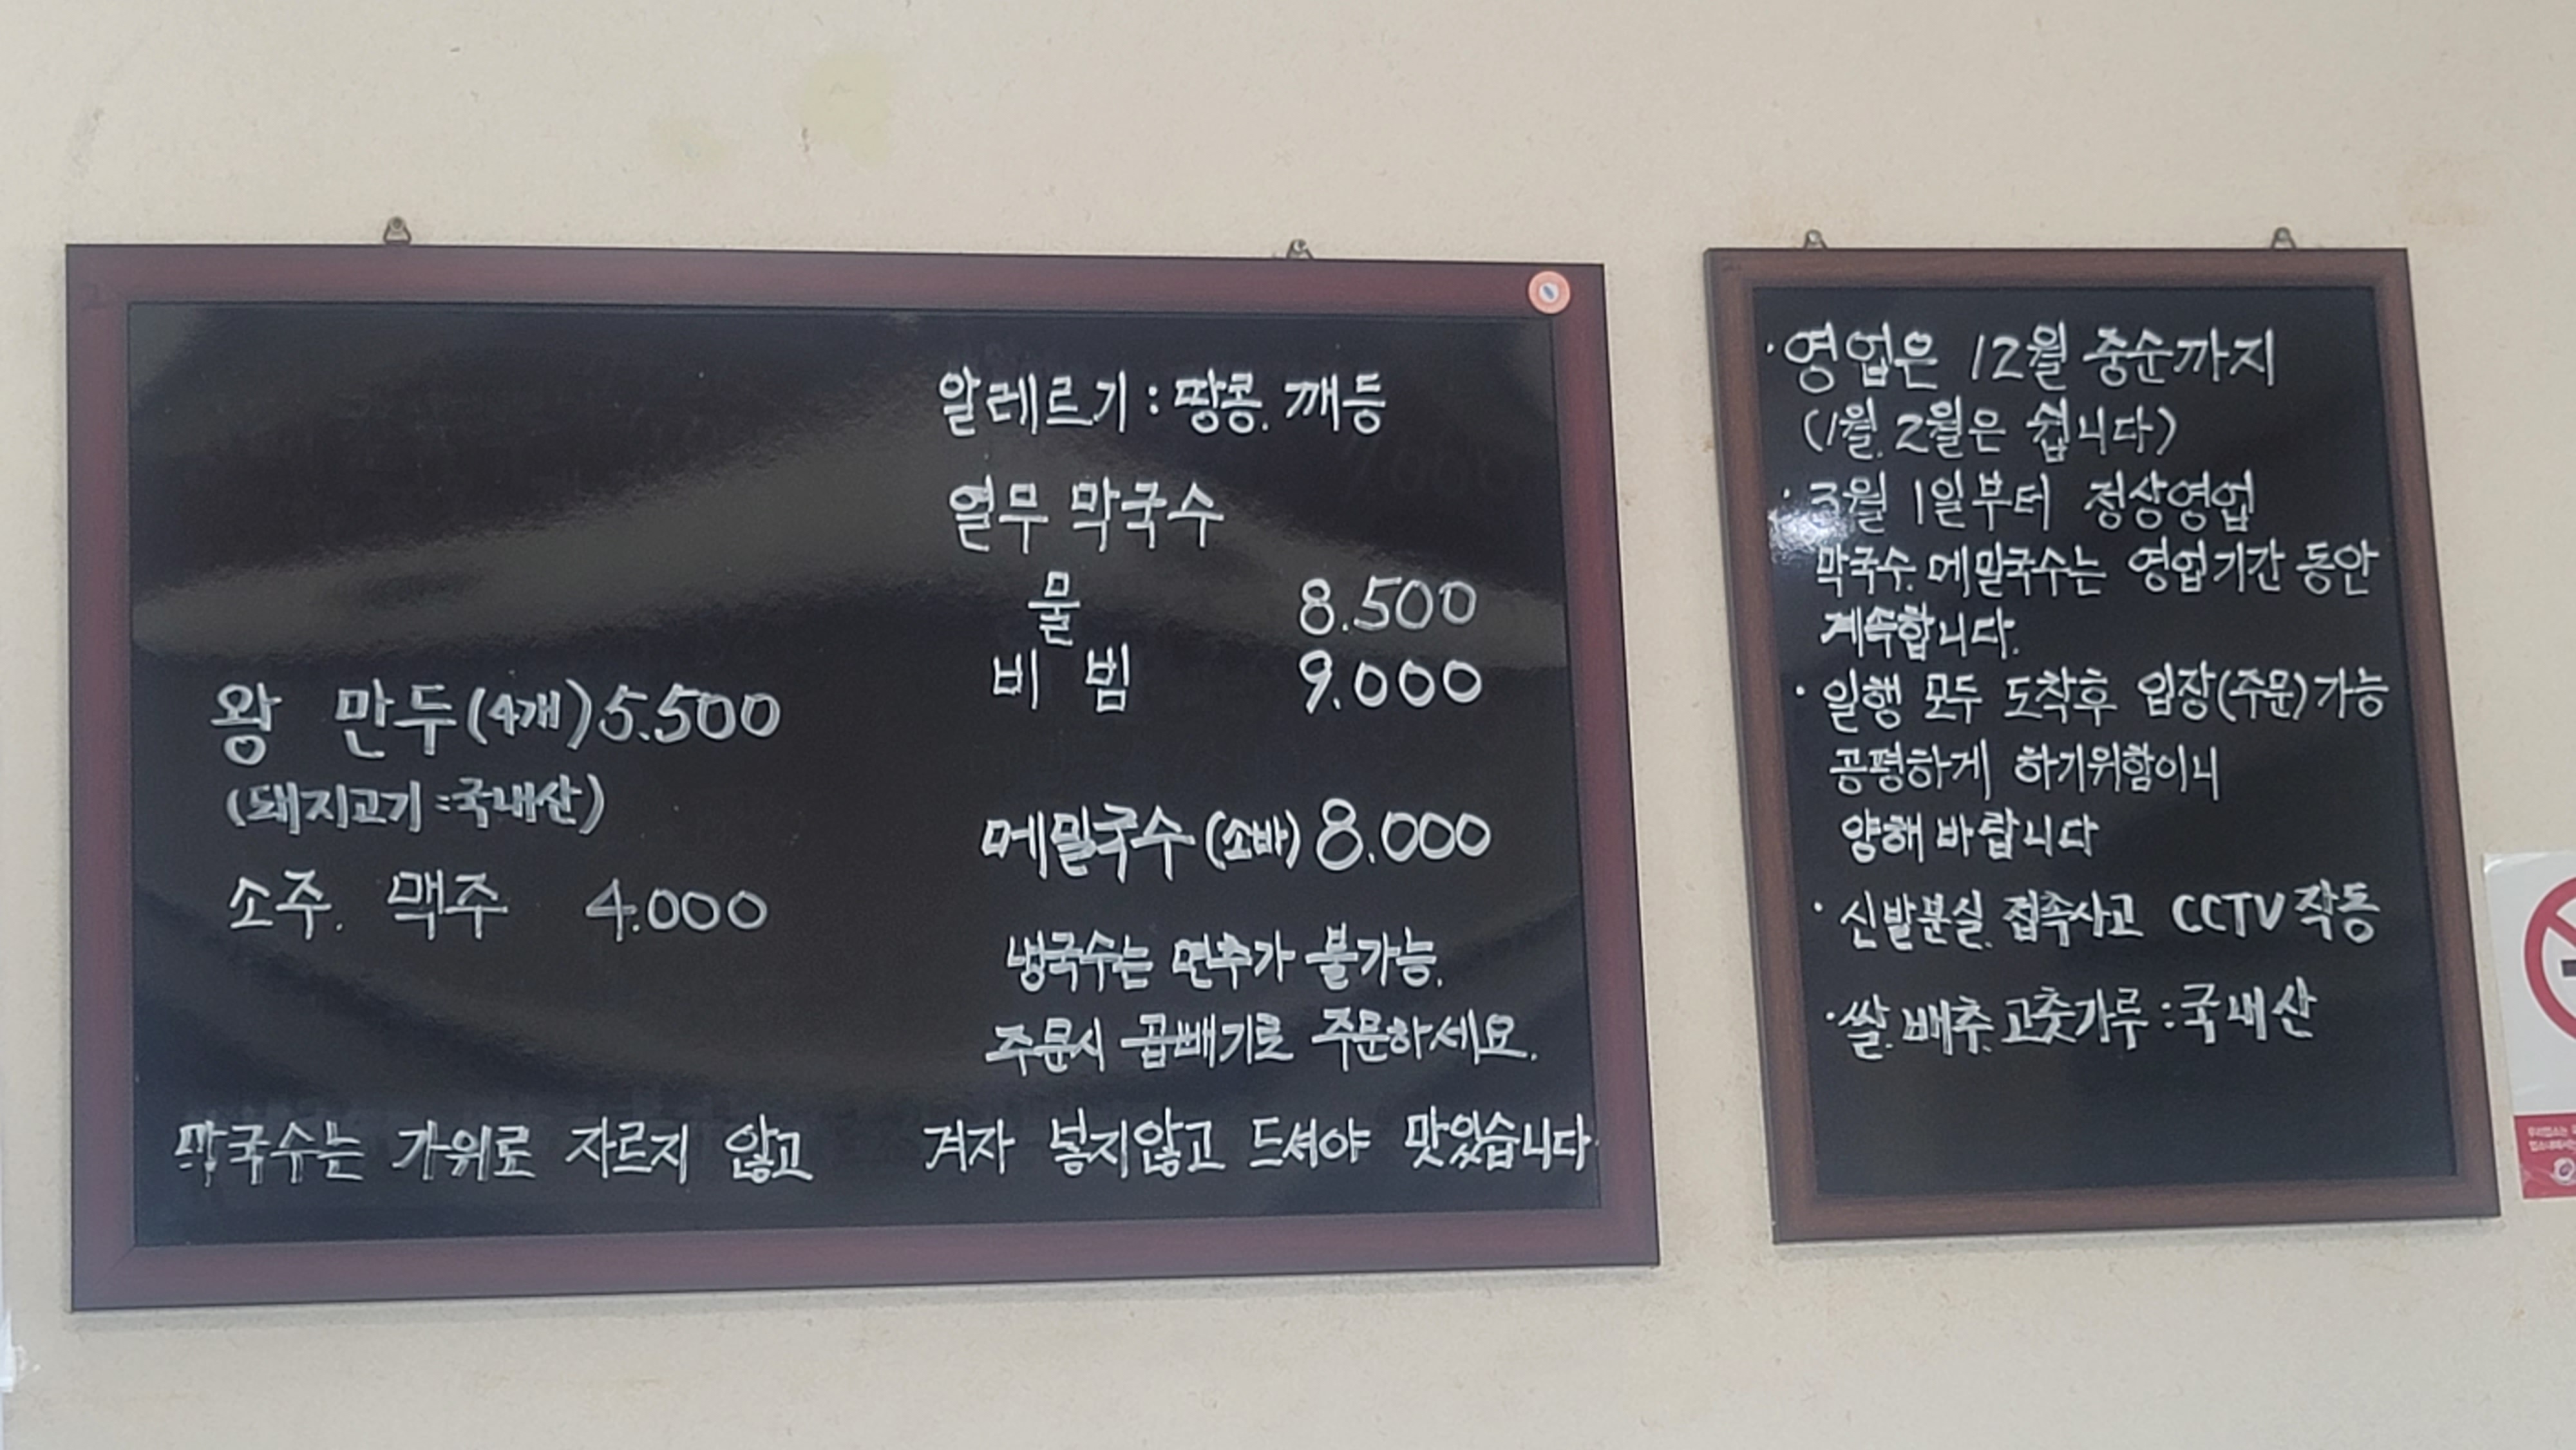 알레르기 : 땅콩. 깨등
열무 막국수
물 8.500
비 빔 9.000
왕 만두(4개) 5.500
(돼지고기 : 국내산)
소주. 맥주 4.000
메밀국수 (소바) 8.000
냉국수는 면추가 불가능.
주문시 곱빼기로 주문하세요.
막국수는 가위로 자르지 않고 겨자 넣지않고 드셔야 맛있습니다.
· 영업은 12월 중순까지
(1월. 2월은 쉽니다)
· 3월 1일부터 정상영업
막국수. 메밀국수는 영업기간 동안
계속합니다.
· 일행 모두 도착후 입장(주문)가능
공평하게 하기위함이니
양해 바랍니다
· 신발분실. 접촉사고 CCTV 작동
· 쌀. 배추. 고춧가루 : 국내산